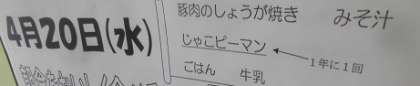 4月20日(水)
豚肉のしょうが焼き　みそ汁
じゃこピーマン ← 1年に1回
ごはん　牛乳